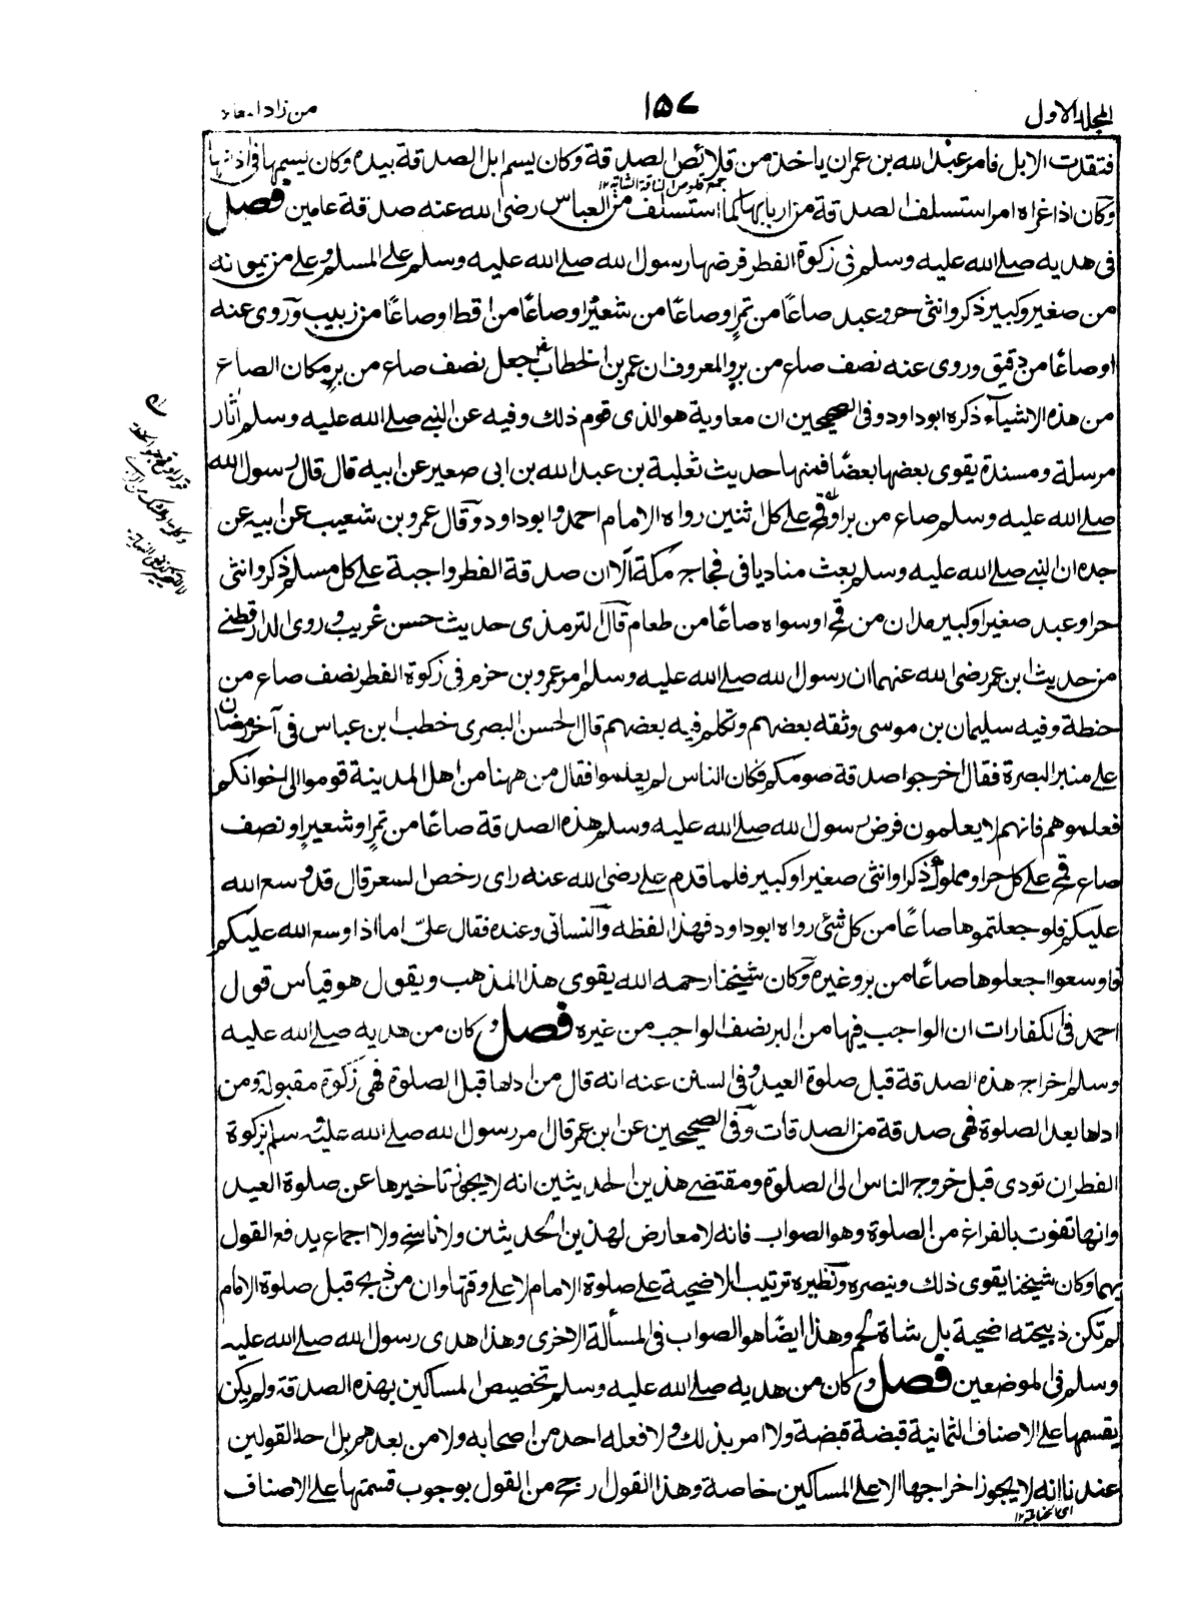 المجلد الاول
١٥٧
من زاد المعاد
فتقدت الابل فامر عبد الله بن عمران ياخذ من قلائص الصدقة وكان يسم ابل الصدقة بيده وكان يسمها فى اذانها
جمع قلوص الناقة الشابة ١٢
وكان اذا عراه امر استسلف الصدقة من اربابها كما استسلف من العباس رضى الله عنه صدقة عامين فصل
فى هديه صلى الله عليه وسلم فى زكوة الفطر فرضها رسول الله صلى الله عليه وسلم على المسلم وعلى من يمونه
من صغير وكبير ذكر وانثى حر وعبد صاعًا من تمرٍ او صاعًا من شعيرٍ او صاعًا من اقط او صاعًا من زبيب وروى عنه
او صاعًا من دقيق وروى عنه نصف صاع من برٍ والمعروف ان عمر بن الخطاب جعل نصف صاع من برٍ مكان الصاع
من هذه الاشياء ذكره ابوداود وفى الصحيحين ان معاوية هو الذى قوم ذلك وفيه عن النبى صلى الله عليه وسلم اثار
مرسلة ومسندة يقوى بعضها بعضًا فمنها حديث ثعلبة بن عبد الله بن ابى صعير عن ابيه قال قال رسول الله
صلى الله عليه وسلم صاع من بر او قمح على كل اثنين رواه الامام احمد وابوداود وقال عمرو بن شعيب عن ابيه عن
جده ان النبى صلى الله عليه وسلم بعث مناديا فى فجاج مكة الا ان صدقة الفطر واجبة على كل مسلم ذكر وانثى
حر او عبد صغير او كبير مدان من قمح او سواه صاعًا من طعام قال الترمذى حديث حسن غريب وروى الدارقطنى
من حديث ابن عمر رضى الله عنهما ان رسول الله صلى الله عليه وسلم امر عمرو بن حزم فى زكوة الفطر نصف صاع من
حنطة وفيه سليمان بن موسى وثقه بعضهم وتكلم فيه بعضهم قال الحسن البصرى خطب ابن عباس فى آخر رمضان
على منبر البصرة فقال اخرجوا صدقة صومكم فكان الناس لم يعلموا فقال من ههنا من اهل المدينة قوموا الى اخوانكم
فعلموهم فانهم لا يعلمون فرض رسول الله صلى الله عليه وسلم هذه الصدقة صاعًا من تمرٍ او شعيرٍ او نصف
صاع قمح على كل حر او مملوك ذكر او انثى صغير او كبير فلما قدم على رضى الله عنه راى رخص السعر قال قد وسع الله
عليكم فلو جعلتموها صاعًا من كل شئ رواه ابوداود فهذا لفظه والنسائى وعنده فقال علىّ اما اذا وسع الله عليكم
فاوسعوا اجعلوها صاعًا من بر وغيره وكان شيخنا رحمه الله يقوى هذا المذهب ويقول هو قياس قول
احمد فى الكفارات ان الواجب فيها من البر نصف الواجب من غيره فصل وكان من هديه صلى الله عليه
وسلم اخراج هذه الصدقة قبل صلوة العيد وفى السنن عنه انه قال من اداها قبل الصلوة فهى زكوة مقبولة ومن
اداها بعد الصلوة فهى صدقة من الصدقات وفى الصحيحين عن ابن عمر قال امر رسول الله صلى الله عليه وسلم بزكوة
الفطر ان تودى قبل خروج الناس الى الصلوة ومقتضى هذين الحديثين انه لا يجوز تاخيرها عن صلوة العيد
وانها تفوت بالفراغ من الصلوة وهو الصواب فانه لا معارض لهذين الحديثين ولا ناسخ ولا اجماع يدفع القول
بهما وكان شيخنا يقوى ذلك وينصره ونظيره ترتيب الاضحية على صلوة الامام لا على وقتها وان من ذبح قبل صلوة الامام
لم تكن ذبيحته اضحية بل شاة لحم وهذا ايضًا هو الصواب فى المسألة الاخرى وهذا هدى رسول الله صلى الله عليه
وسلم فى الموضعين فصل وكان من هديه صلى الله عليه وسلم تخصيص المساكين بهذه الصدقة ولم يكن
يقسمها على الاصناف الثمانية قبضة قبضة ولا امر بذلك ولا فعله احد من اصحابه ولا من بعدهم بل احد القولين
عندنا انه لا يجوز اخراجها الا على المساكين خاصة وهذا القول ارجح من القول بوجوب قسمتها على الاصناف